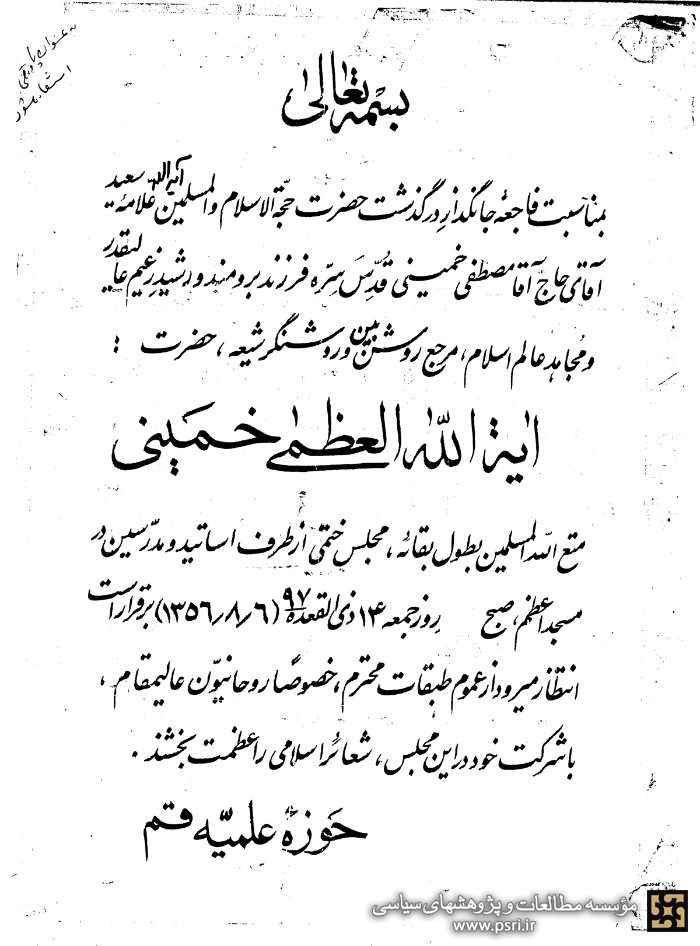 به عنوان پاورقی
استفاده شود
بسمه تعالی
بمناسبت فاجعهٔ جانگداز درگذشت حضرت حجة الاسلام والمسلمین آیة الله علامهٔ سعید
آقای حاج آقا مصطفی خمینی قدّس سرّه فرزند برومند و رشید زعیم عالیقدر
و مجاهد عالم اسلام، مرجع روشن بین و روشنگر شیعه، حضرت :
ایة الله العظمی خمینی
متع الله المسلمین بطول بقائه، مجلس ختمی از طرف اساتید و مدرّسین در
مسجد اعظم، صبح روز جمعه ۱۴ ذی القعده ۹۷ (۱۳۵۶/۸/۶) برقرار است
انتظار میرود از عموم طبقات محترم، خصوصاً روحانیوّن عالیمقام،
با شرکت خود در این مجلس، شعائر اسلامی را عظمت بخشند.
حوزهٔ علمیّه قم
مؤسسه مطالعات و پژوهشهای سیاسی
www.psri.ir